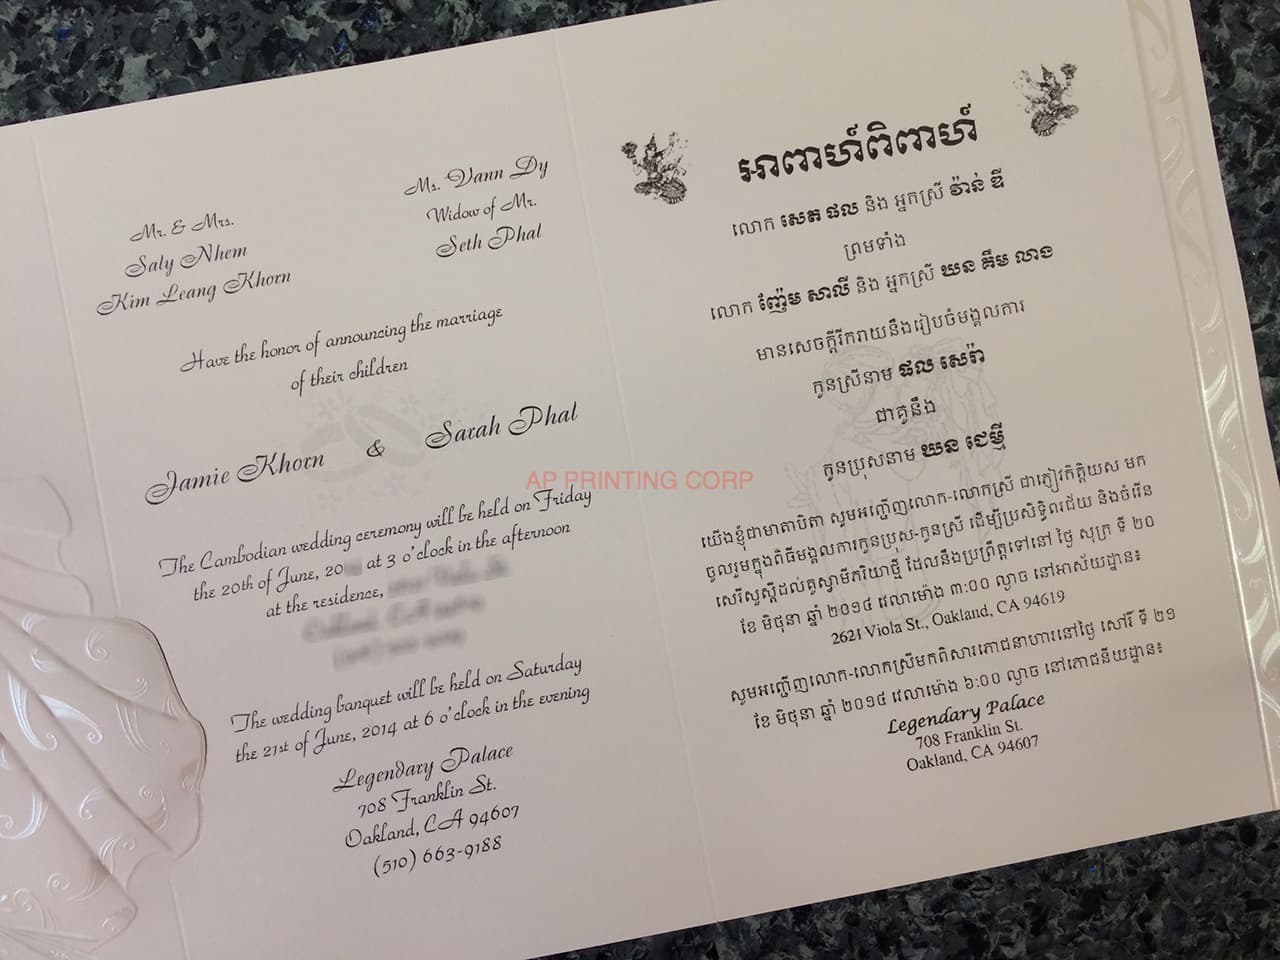 Mr. & Mrs.
Saly Nhem
Kim Leang Khorn
Ms. Vann Dy
Widow of Mr.
Seth Phal
Have the honor of announcing the marriage
of their children
Jamie Khorn & Sarah Phal
The Cambodian wedding ceremony will be held on Friday
the 20th of June, 20 at 3 o'clock in the afternoon
at the residence,
The wedding banquet will be held on Saturday
the 21st of June, 2014 at 6 o'clock in the evening
Legendary Palace
708 Franklin St.
Oakland, CA 94607
(510) 663-9188
អាពាហ៍ពិពាហ៍
លោក សេត ផល និង អ្នកស្រី វ៉ាន់ ឌី
ព្រមទាំង
លោក ញ៉ែម សាលី និង អ្នកស្រី ឃន គឹម លាង
មានសេចក្តីរីករាយនឹងរៀបចំមង្គលការ
កូនស្រីនាម ផល សេរ៉ា
ជាគូនឹង
កូនប្រុសនាម ឃន ជេម្មី
យើងខ្ញុំជាមាតាបិតា សូមអញ្ជើញលោក-លោកស្រី ជាភ្ញៀវកិត្តិយស មក
ចូលរួមក្នុងពិធីមង្គលការកូនប្រុស-កូនស្រី ដើម្បីប្រសិទ្ធិពរជ័យ និងចំរើន
សេរីសួស្តីដល់គូស្វាមីភរិយាថ្មី ដែលនឹងប្រព្រឹត្តទៅនៅ ថ្ងៃ សុក្រ ទី ២០
ខែ មិថុនា ឆ្នាំ ២០១៤ វេលាម៉ោង ៣:០០ ល្ងាច នៅអាស័យដ្ឋាន៖
2621 Viola St., Oakland, CA 94619
សូមអញ្ជើញលោក-លោកស្រីមកពិសារភោជនាហារនៅថ្ងៃ សៅរ៍ ទី ២១
ខែ មិថុនា ឆ្នាំ ២០១៤ វេលាម៉ោង ៦:០០ ល្ងាច នៅភោជនីយដ្ឋាន៖
Legendary Palace
708 Franklin St.
Oakland, CA 94607
AP PRINTING CORP